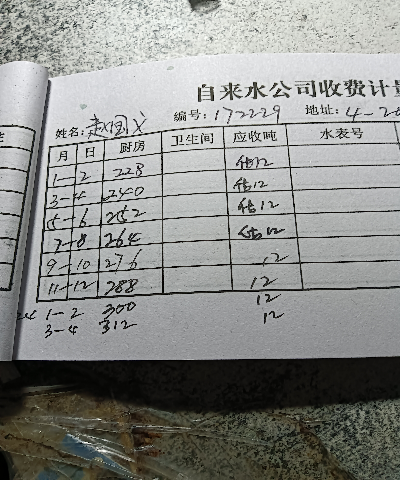 自来水公司收费计量
姓名: 赵国义 编号: 172229 地址: 4-20
月 日 厨房 卫生间 应收吨 水表号
1-2 228 估12
3-4 240 估12
5-6 252 估12
7-8 264 估12
9-10 276 12
11-12 288 12
24 1-2 300 12
3-4 312 12